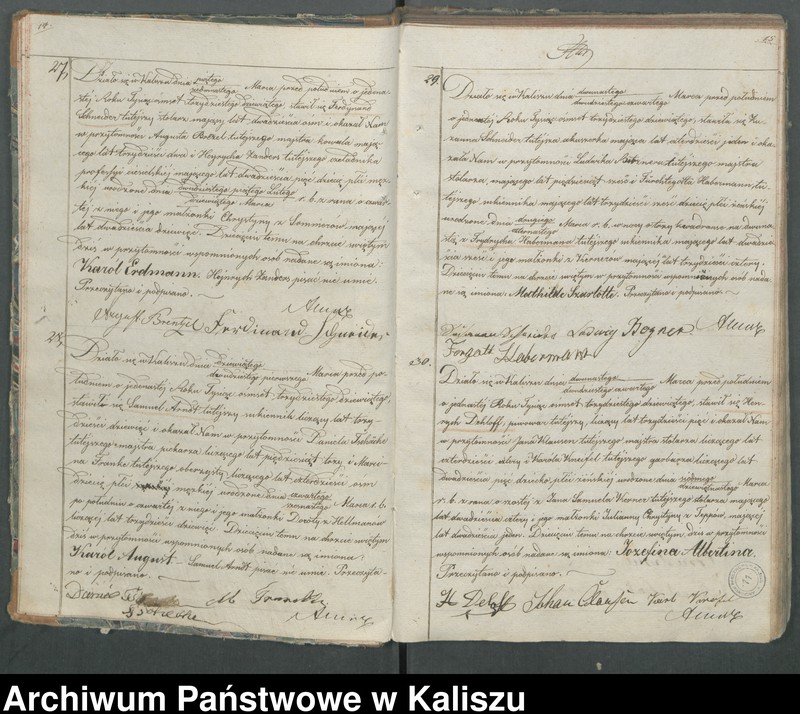 14
27.
Działo się w Kaliszu dnia piątego / siedemnastego Marca przed południem o jedena-
stej Roku Tysiąc ośmset trzydziestego dziewiątego, stawił się Ferdynand
Schneider tutejszy stolarz, mający lat dwadzieścia ośm i okazał Nam
w przytomności Augusta Brentzel tutejszego majstra kowala mają-
cego lat trzydzieści dwa i Heynrycha Zanders tutejszego czeladnika
professyi mającego lat dwadzieścia pięć dziecię płci męz-
kiej urodzone dnia dwudziestego piątego Lutego / dziewiątego Marca r. b. z rana o czwar-
tej z niego i jego małżonki Chrystyny z Sommerów, mającej
lat dwadzieścia dziewięć. Dziecięciu temu na chrzcie świętym
dziś w przytomności wspomnionych osób nadane są imiona:
Karol Erdmann. Heynrych Zanders pisać nie umie.
Przeczytano i podpisano.
August Brentzel Ferdinand Schneider
28.
Działo się w Kaliszu dnia dziewiątego / dwudziestego pierwszego Marca przed po-
łudniem o jedenastej Roku Tysiąc ośmset trzydziestego dziewiątego,
stawił się Samuel Arndt tutejszy sukiennik liczący lat trzy-
dzieści dziewięć i okazał Nam w przytomności Daniela
tutejszego majstra piekarza liczącego lat piędziesiąt trzy i Marci-
na Franke tutejszego liczącego lat czterdzieści ośm
dziecię płci męzkiej urodzone dnia czwartego / szesnastego Marca r. b.
po południu o czwartej z niego i jego małżonki Doroty z Hellmanów
liczącej lat trzydzieści dziewięć. Dziecięciu temu na chrzcie świętym
dziś w przytomności wspomnionych osób nadane są imiona
Karol August. Samuel Arndt pisać nie umie. Przeczyta-
no i podpisano.
M Francke
15
29.
Działo się w Kaliszu dnia dwunastego / dwudziestego czwartego Marca przed południem
o jedenastej Roku Tysiąc ośmset trzydziestego dziewiątego, stawiła się Zu-
zanna Schneider tutejsza akuszerka mająca lat czterdzieści jeden i oka-
zała Nam w przytomności Ludwika tutejszego majstra
stolarza, mającego lat piędziesiąt sześć i Fürchtegotta Habermann, tu-
tejszego sukiennika mającego lat trzydzieści sześć dziecię płci żeńskiej
urodzone dnia drugiego / czternastego Marca r. b. w nocy o trzy kwadranse na dwuna-
stą z Frydrycha Habermana tutejszego sukiennika mającego lat dwadzie-
ścia sześć i jego małżonki z Wernerów mającej lat trzydzieści cztery.
Dziecięciu temu na chrzcie świętym w przytomności wspomnionych osób nada-
ne są imiona Mathilde Szarlotte. Przeczytano i podpisano.
Ludwig Begner
Habermann
30.
Działo się w Kaliszu dnia dwunastego / dwudziestego czwartego Marca przed południem
o jedenastej Roku Tysiąc ośmset trzydziestego dziewiątego, stawił się Hen-
rych Dehloff, piwowar tutejszy, liczący lat trzydzieści pięć i okazał Nam
w przytomności Jana Klausen tutejszego majstra stolarza liczącego lat
czterdzieści cztery i Karola Kneifel tutejszego garbarza liczącego lat
dwadzieścia pięć dziecko płci żeńskiej urodzone dnia siódmego / dziewiętnastego Marca
r. b. z rana o szóstej z Jana Samuela Werner tutejszego stolarza mającego
lat dwadzieścia cztery i jego małżonki Julianny Chrystyny z Teppów, mającej
lat dwadzieścia jeden. Dziecięciu temu na chrzcie świętym dziś w przytomności
wspomnionych osób nadane są imiona Jozefina Albertina.
Przeczytano i podpisano.
H Deloff Johan Clausen Karl
Archiwum Państwowe w Kaliszu